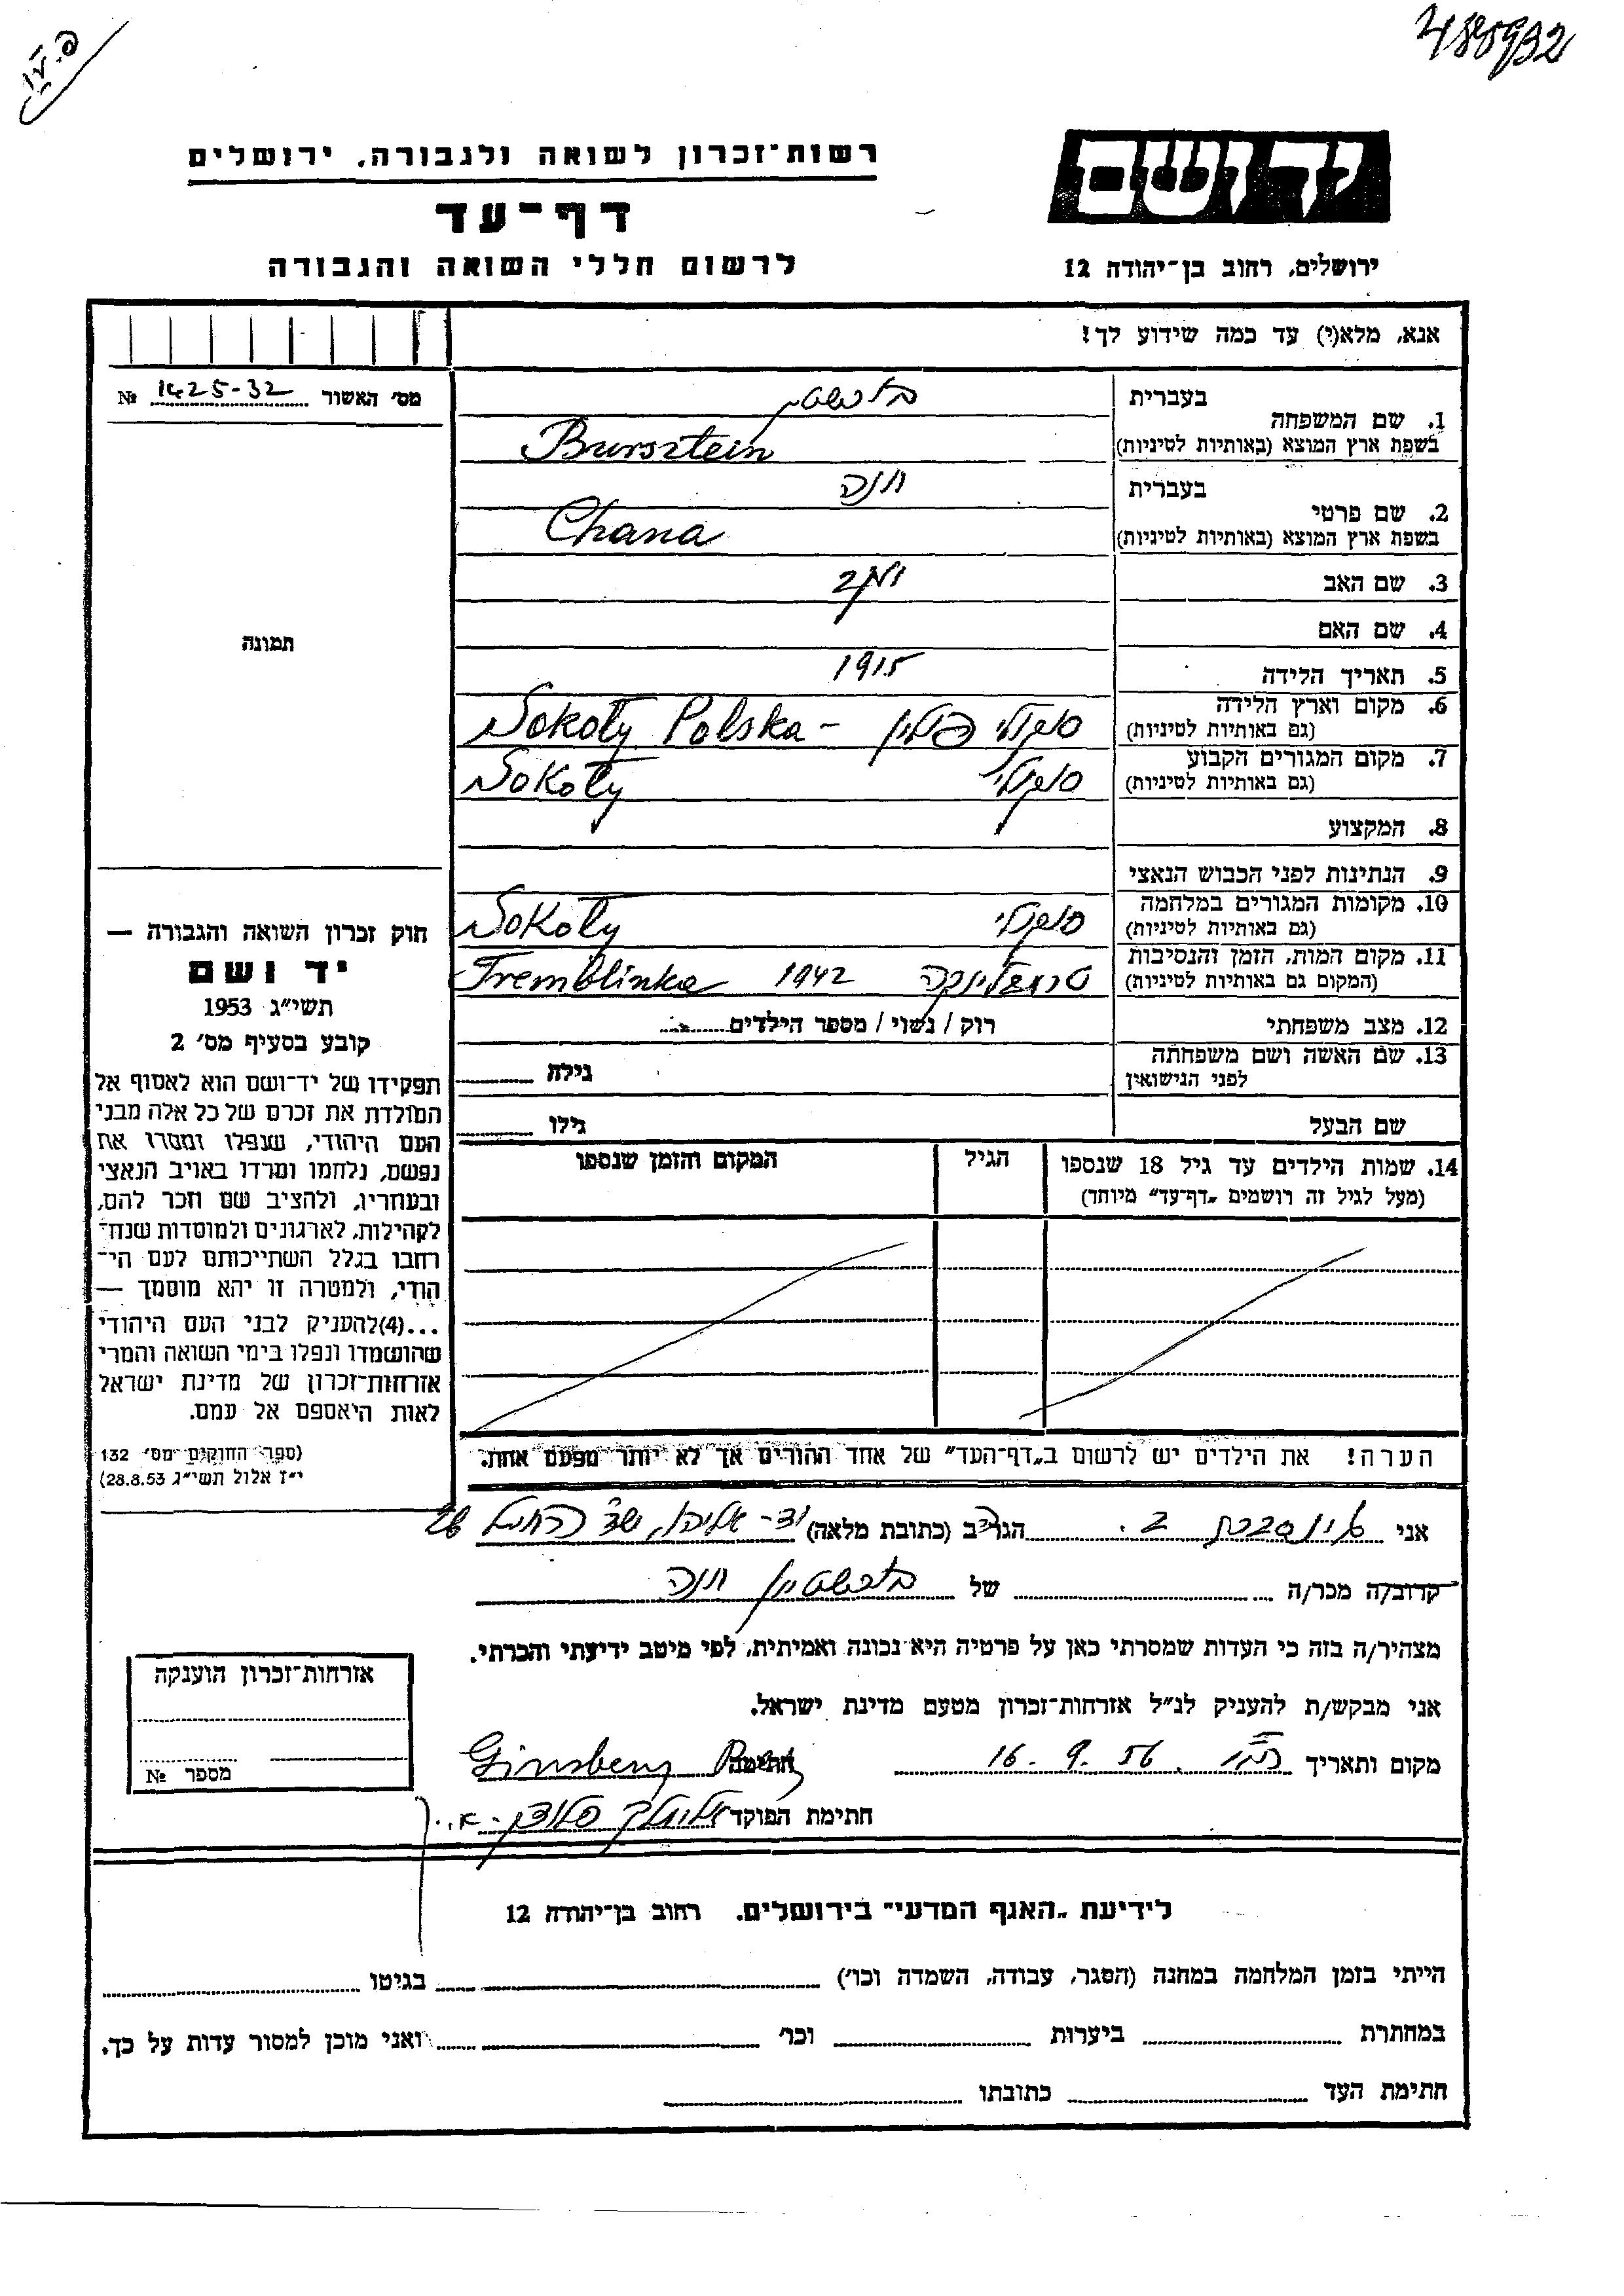 488932
רשות־זכרון לשואה ולגבורה, ירושלים
יד ושם
דף־עד
לרשום חללי השואה והגבורה
ירושלים, רחוב בן־יהודה 12
אנא, מלא(י) עד כמה שידוע לך!
מס׳ האשור 1425-32 №
בעברית בורשטין
1. שם המשפחה
בשפת ארץ המוצא (באותיות לטיניות) Bursztein
בעברית חנה
2. שם פרטי
בשפת ארץ המוצא (באותיות לטיניות) Chana
3. שם האב
4. שם האם
תמונה
5. תאריך הלידה 1915
6. מקום וארץ הלידה
(גם באותיות לטיניות) סוקולי פולין - Sokoły Polska
7. מקום המגורים הקבוע
(גם באותיות לטיניות) סוקולי Sokoły
8. המקצוע
9. הנתינות לפני הכבוש הנאצי
10. מקומות המגורים במלחמה
(גם באותיות לטיניות) סוקולי Sokoły
11. מקום המות, הזמן והנסיבות
(המקום גם באותיות לטיניות) טרמבלינקה 1942 Tremblinka
12. מצב משפחתי רוק / נשוי / מספר הילדים
13. שם האשה ושם משפחתה
לפני הנישואין גילה
שם הבעל גילו
14. שמות הילדים עד גיל 18 שנספו הגיל המקום והזמן שנספו
(מעל לגיל זה רושמים „דף־עד״ מיוחד)
הערה! את הילדים יש לרשום ב„דף־העד״ של אחד ההורים אך לא יותר מפעם אחת.
חוק זכרון השואה והגבורה —
יד ושם
תשי״ג 1953
קובע בסעיף מס׳ 2
תפקידו של יד־ושם הוא לאסוף אל
המולדת את זכרם של כל אלה מבני
העם היהודי, שנפלו ומסרו את
נפשם, נלחמו ומרדו באויב הנאצי
ובעוזריו, ולהציב שם וזכר להם,
לקהילות, לארגונים ולמוסדות שנח־
רחבו בגלל השתייכותם לעם הי־
הודי, ולמטרה זו יהא מוסמך —
...(4)להעניק לבני העם היהודי
שהושמדו ונפלו בימי השואה והמרי
אזרחות־זכרון של מדינת ישראל
לאות היאספם אל עמם.
(ספר החוקים מס׳ 132
י״ז אלול תשי״ג 28.8.53)
אני גינזברג הגר/ב (כתובת מלאה) יד-אליהו,
קרוב/ה מכר/ה של בורשטין חנה
מצהיר/ה בזה כי העדות שמסרתי כאן על פרטיה היא נכונה ואמיתית, לפי מיטב ידיעתי והכרתי.
אני מבקש/ת להעניק לנ״ל אזרחות־זכרון מטעם מדינת ישראל.
מקום ותאריך 16.9.56 חתימה Ginsberg
חתימת הפוקד
אזרחות־זכרון הוענקה
מספר №
לידיעת „האגף המדעי״ בירושלים. רחוב בן־יהודה 12
הייתי בזמן המלחמה במחנה (הסגר, עבודה, השמדה וכו׳) בגיטו
במחתרת ביערות וכו׳ ואני מוכן למסור עדות על כך.
חתימת העד כתובתו